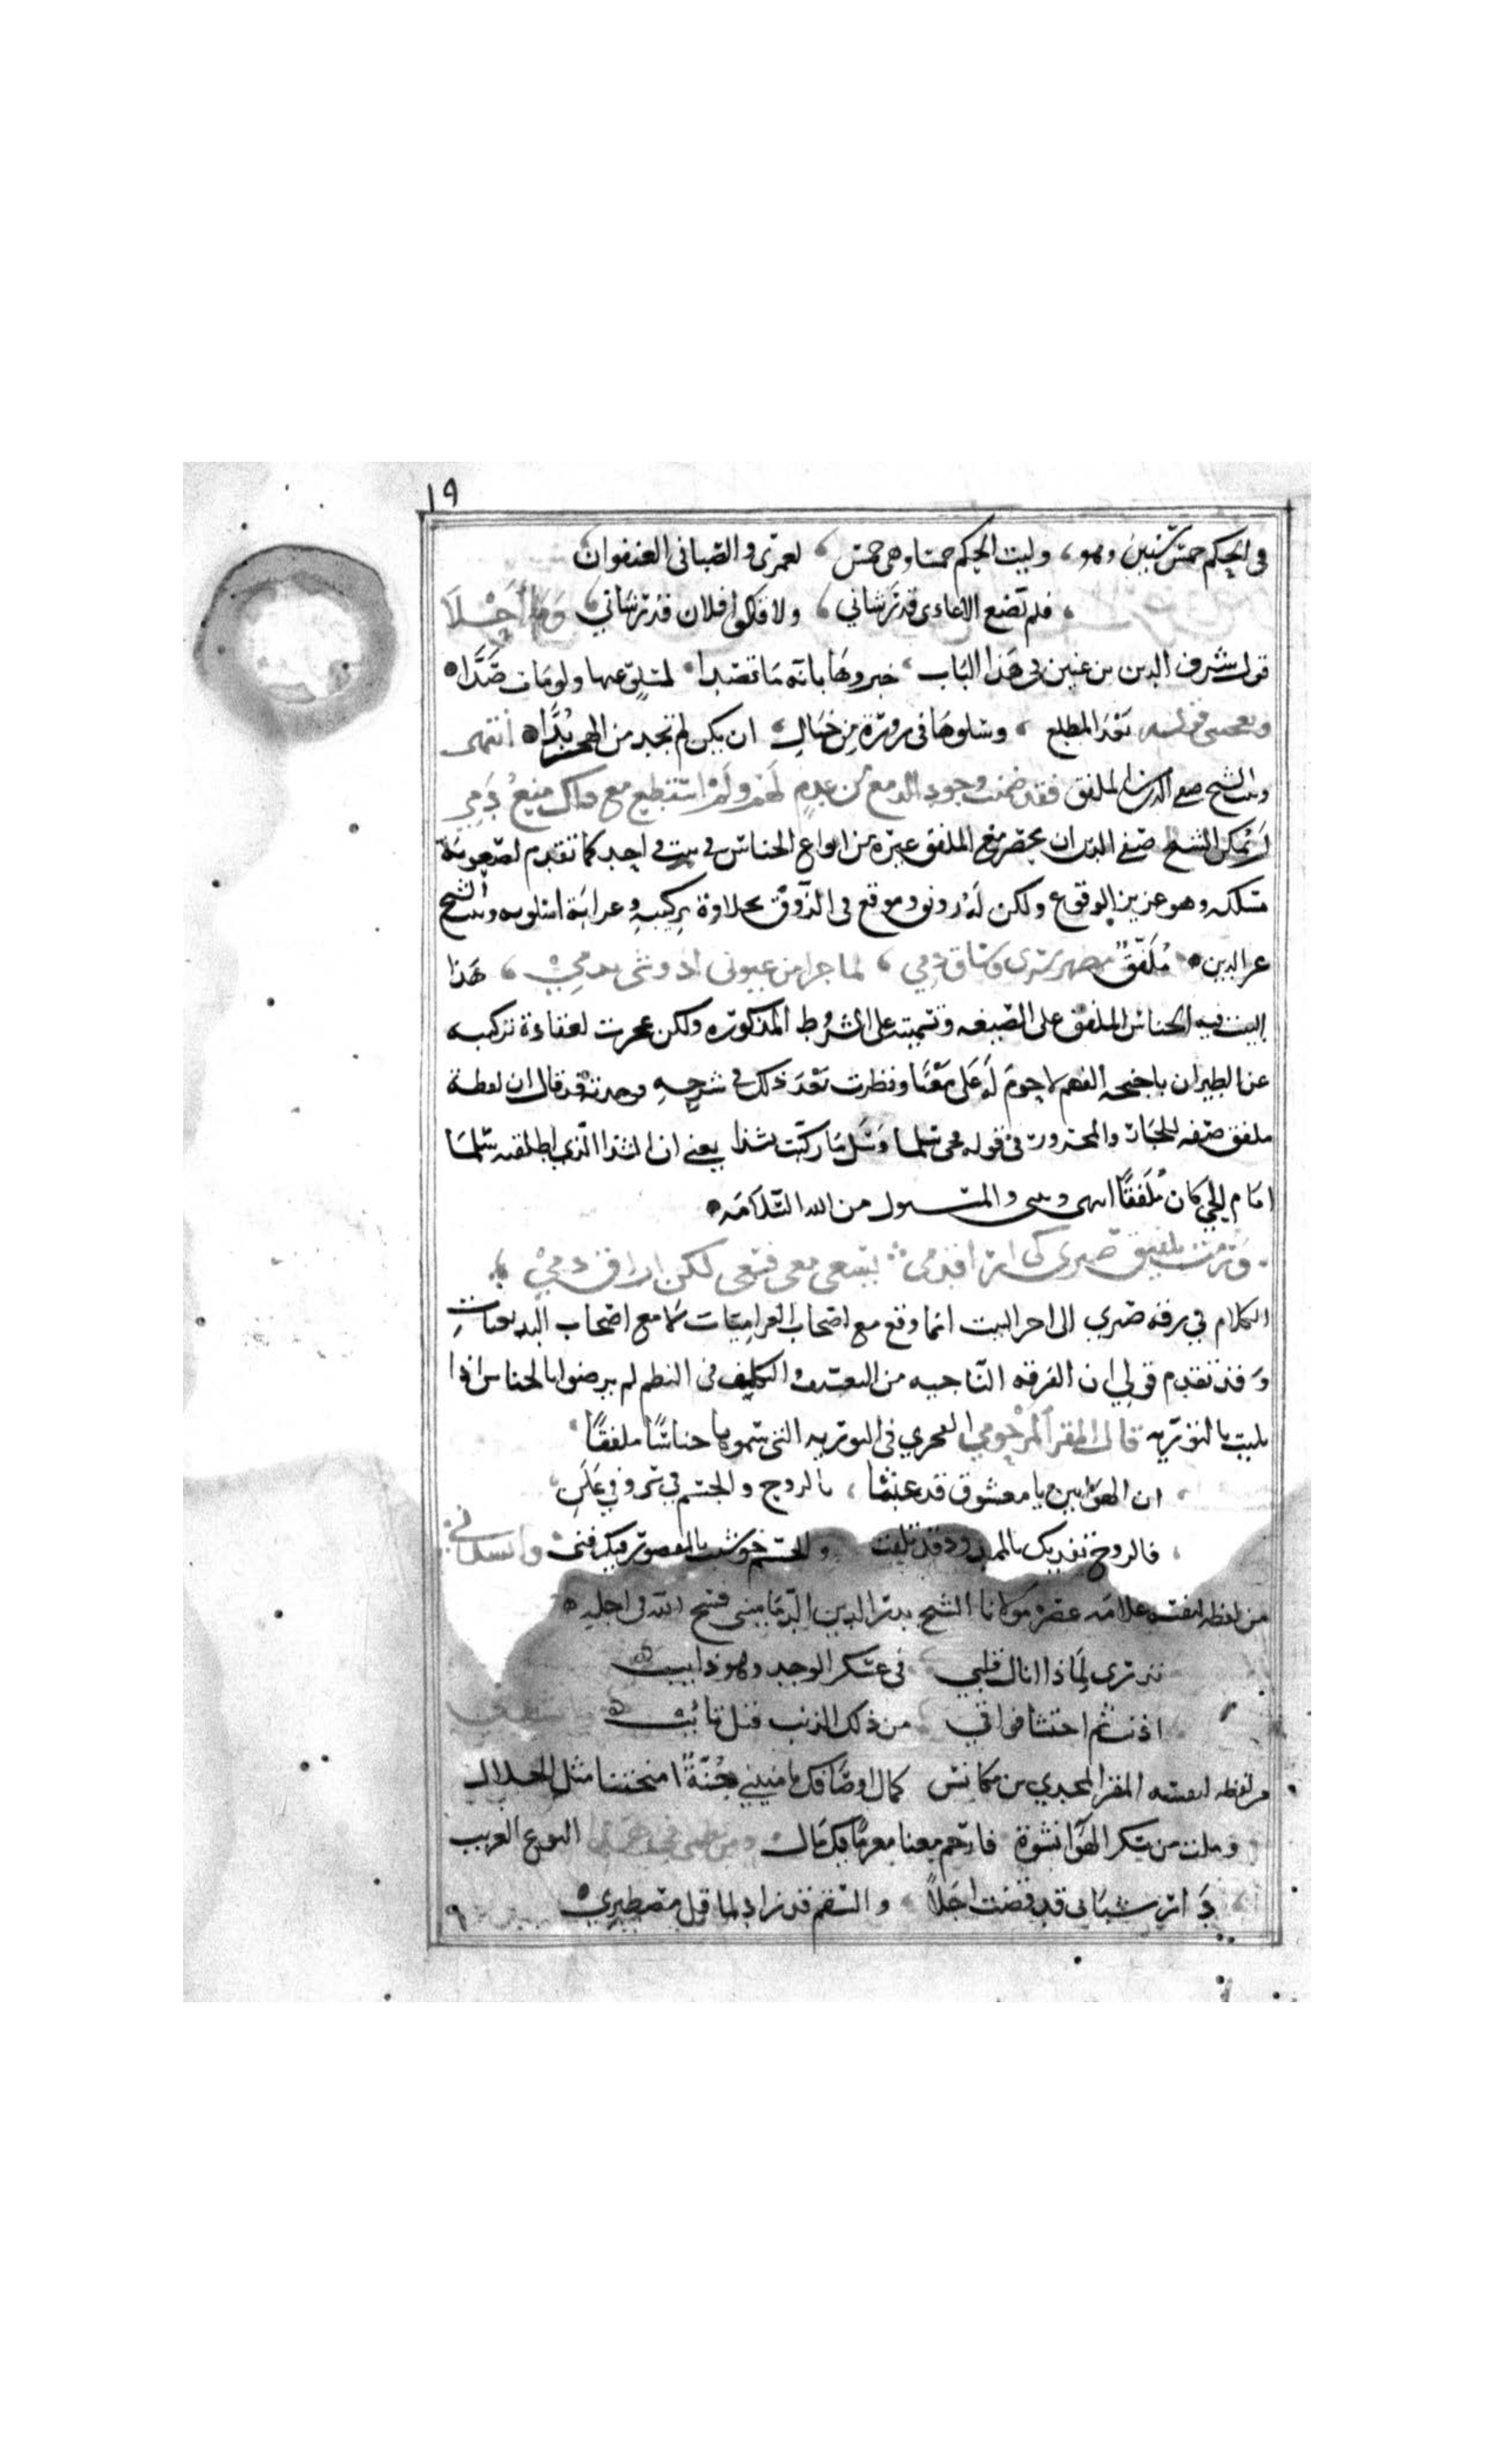 ١٩
في الحكم خمس سنين وهو، وليت الحكم خمسا وهي خمس، لعمري والصبا في العنفوان
فلم تضع الاعادي قدر شاني، ولا قالوا فلان قد رشاني، وما أحلا
قول شرف الدين بن عنين في هذا الباب، خبروها بانه ما تصدا، لسلو عنها ولو مات صدّا
ويعجبني قوله بعد المطلع، وسلوها في زورة من خيال، ان يكن لم تجد من الهجر بُدّا انتهى
وبيت الشيخ صفي الدين الملفق فقد ضمنت وجود الدمع من عدم لهم ولم استطع مع ذاك منع دمي
لم يمكن الشيخ صفي الدين ان يحضر مع الملفق غيره من انواع الجناس في بيت واحد كما تقدم لصعوبة
مسلكه وهو عزيز الوقوع ولكن له رونق وموقع في الذوق بحلاوة تركيبه وغرابة اسلوبه وبيت الشيخ
عز الدين مُلَفّقٌ مظهر سري وشاق دمي، لما جرا من عيوني اذ وشى ندمي، هذا
البيت فيه الجناس الملفق على الصيغه وتسميته على الشروط المذكوره ولكن عجزت لعقادة تركيبه
عن الطيران باجنحة الفهم لاحوم له على معنًا ونظرت بعد ذلك في شرحه وجدته قد قال ان لفظة
ملفق صفه للجار والمجرور في قوله حي سلما وسل ما ركبت بشذا يعني ان الشذا الذي اطلقته سلما
امام الحي كان مُلَفقًا انتهى وبيتي والمسئول من الله السلامه
ورمت تلفيق صبري كي ارى قدمي يسعى معي فسعى لكن اراق دمي
الكلام في رقة صبري الى اخر البيت انما وقع مع اصحاب الغراميات لا مع اصحاب البديعيات
وقد تقدم قولي ان الفرقه الناجيه من التعسف والتكليف في النظم لم يرضوا بالجناس اذا
بليت بالتوريه قال المقر المرحومي الفخري في التوريه التي سموها جناسًا ملفقًا
ان الهوابين يا معشوق قد عبثا، بالروح والجسم في سر وفي علن
فالروح تفديك بالممدود قد تلفت والجسم حوشيت بالمقصور فيك فني وانشدني
من لفظه لنفسه علامة عصره مولانا الشيخ بدر الدين الدماميني فسح الله في اجله
ترى لماذا اناك قلبي في عسكر الوجد وهو ذايب
اذنب ثم اختشا فوافى من ذلك الذنب قبل تائب وانشدني
من لفظه لنفسه المقر المجدي بن مكانس كمال اوصافك يا منيتي جُنّةً ا منحتنا مثل الخلال
وملت من سكر الهوا نشوة فارحم معنا مغرمًا بك مال ومن نظمي في هذا النوع الغريب
دَاتر شبابي قد قضت اجلًا، والسقم قد زاد لما قل مصطبري